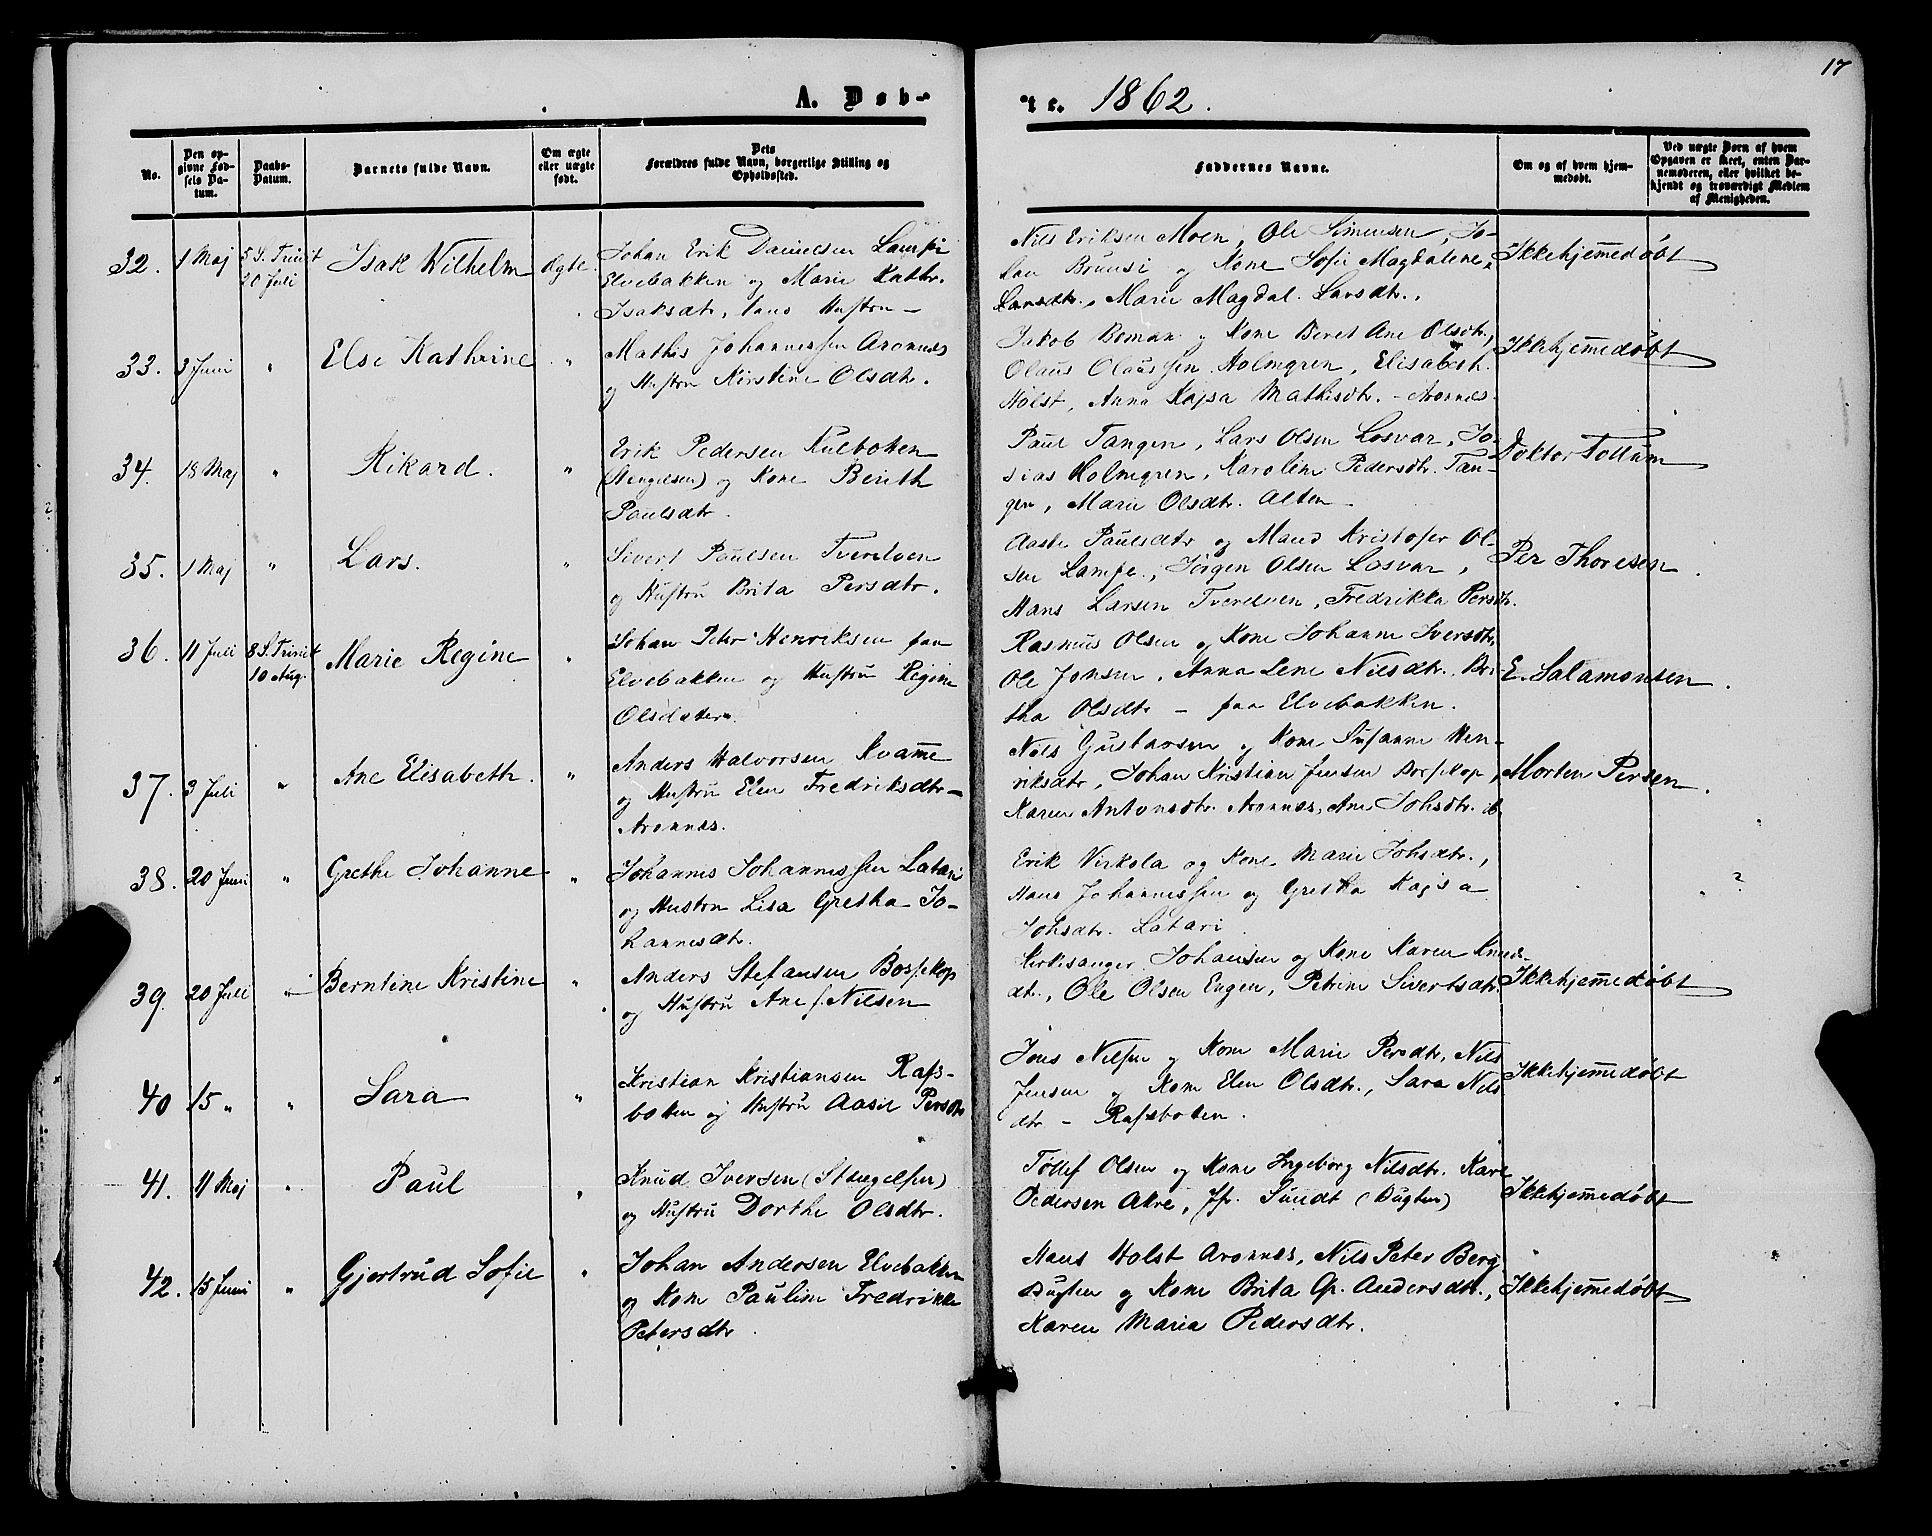 17
A. Døb-
te. 1862.
No.
Den op-
givne Fød-
sels Da-
tum.
Daabs-
Datum.
Barnets fulde Navn.
Om ægte
eller uægte
født.
Dets
Forældres fulde Navn, borgerlige Stilling og
Opholdssted.
Faddernes Navne.
Om og af hvem hjem-
medøbt.
Ved uægte Børn af hvem
Opgaven er skeet, enten Bar-
nemoderen, eller hvilket be-
kjendt og troværdigt Medlem
af Menigheden.
32. 1 Maj 5 S. Trinit
20 Juli
Isak Wilhelm
Ægte.
Johan Erik Danielsen Lampi
Elvebakken og Marie Kathr.
Isaksdtr, hans Hustru –
Nils Eriksen Moen, Ole Simensen, Jo-
han Bruusi og Kone Sofie Magdalene
Larsdtr., Marie Magdal. Larsdtr.,
Ikkehjemmedøbt
33. 3 Juni "
Else Kathrine "
Mathis Johannessen Aronnes
og Hustru Kirstine Olsdtr.
Jakob Boman og Kone Beret Ane Olsdtr,
Olaus Olaussen Holmgren, Elisabeth
Holst, Anna Kajsa Mathisdtr. – Aronnes
Ikkehjemmedøbt
34. 18 Maj "
Rikard. "
Erik Pedersen Kulboten
(Stengelsen) og Kone Berith
Paulsdtr.
Paul Tangen, Lars Olsen Losvar, Jo-
sias Holmgren, Karoline Pedersdtr. Tan-
gen, Marie Olsdtr. Alten
Doktor Tollum
35. 1 Maj "
Lars. "
Sivert Paulsen Tverelven
og Hustru Brita Persdtr.
Aaste Paulsdtr og Mand Kristofer Ol-
sen Lampe, Jörgen Olsen Losvar,
Hans Larsen Tverelven, Fredrikka Persdtr.
Per Thoresen.
36. 11 Juli 8 S. Trinit
10 Aug.
Marie Regine "
Johan Peter Henriksen paa
Elvebakken og Hustru Regine
Olsdatter.
Rasmus Olsen og Kone Johanne Iversdtr,
Ole Jonsen, Anna Lene Nilsdtr, Bri-
tha Olsdtr – paa Elvebakken.
E. Salamonsen.
37. 3 Juli "
Ane Elisabeth. "
Anders Halvorsen Kvamme
og Hustru Elen Fredriksdtr –
Aronnes.
Nils Gustavsen og Kone Susanne Hen-
riksdtr, Johan Kristian Jensen Bossekop,
Karen Antonsdtr. Aronnes, Ane Johsdtr. ib.
Morten Persen.
38. 20 Juni "
Grethe Johanne "
Johannes Johannessen Latari
og Hustru Lisa Gretha Jo-
hannesdtr.
Erik Virkola og Kone Marie Johsdtr.,
Hans Johannessen og Gretha Kajsa
Johsdtr. Latari
?
39. 20 Juli "
Berntine Kristine "
Anders Stefansen Bossekop
og Hustru Ane f. Nilsen
Kirkesanger Johansen og Kone Karen Knuds-
dtr., Ole Olsen Engen, Petrine Sivertsdtr.
Ikkehjemmedøbt
40 15 " "
Sara "
Kristian Kristiansen Rafs-
botten og Hustru Aasil Persdtr
Jens Nilsen og Kone Marie Persdtr, Nils
Jensen og Kone Elen Olsdtr., Sara Nils
dtr – Rafsbotten.
Ikkehjemmedøbt
41. 11 Maj "
Paul "
Knud Iversen (Stængelsen)
og Hustru Dorthe Olsdtr.
Tollef Olsen og Kone Ingeborg Nilsdtr. Kare
Pedersen Akre, Fr. Sundt (Bugten)
Ikkehjemmedøbt
42. 15 Juni "
Gjertrud Sofie "
Johan Andersen Elvebakken
og Kone Pauline Fredrikke
Petersdtr.
Hans Holst Aronnes, Nils Peter Berg
Bugten og Kone Brita Gr. Andersdtr.,
Karen Maria Pedersdtr.
Ikkehjemmedøbt